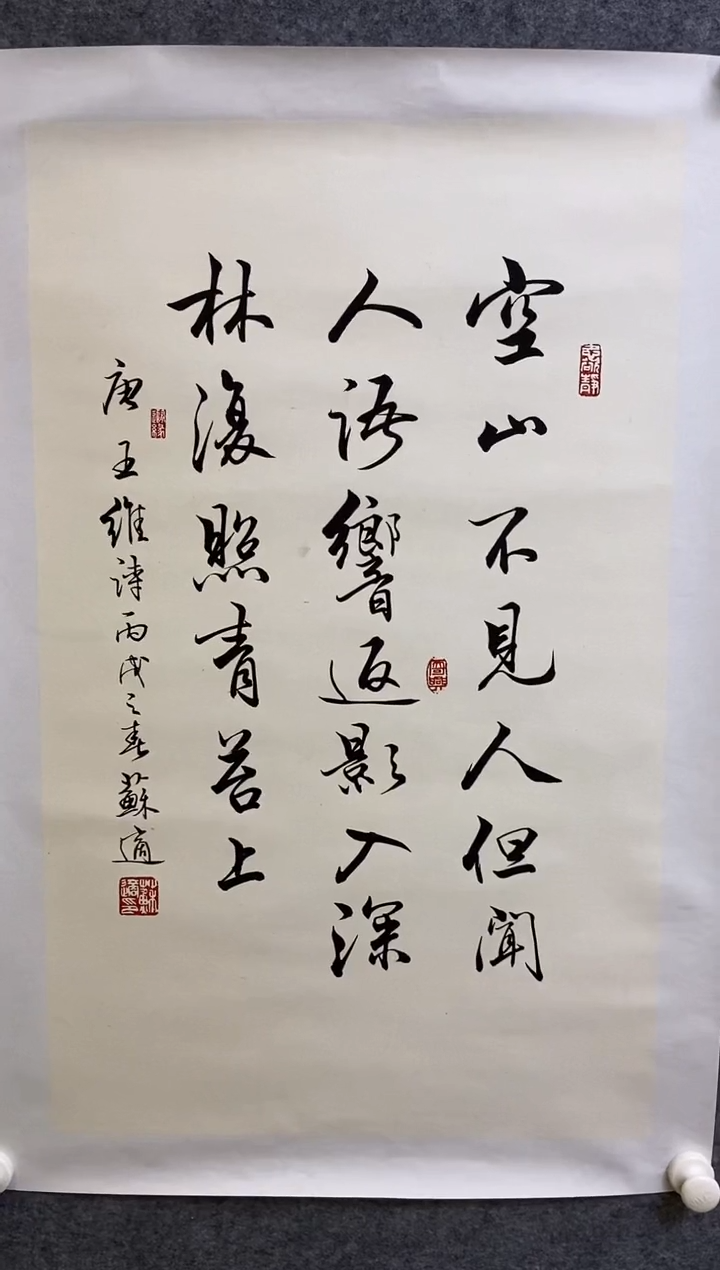 空山不見人但聞
人語響返影入深
林復照青苔上
唐王維詩丙戌之春蘇適
蘇適之印